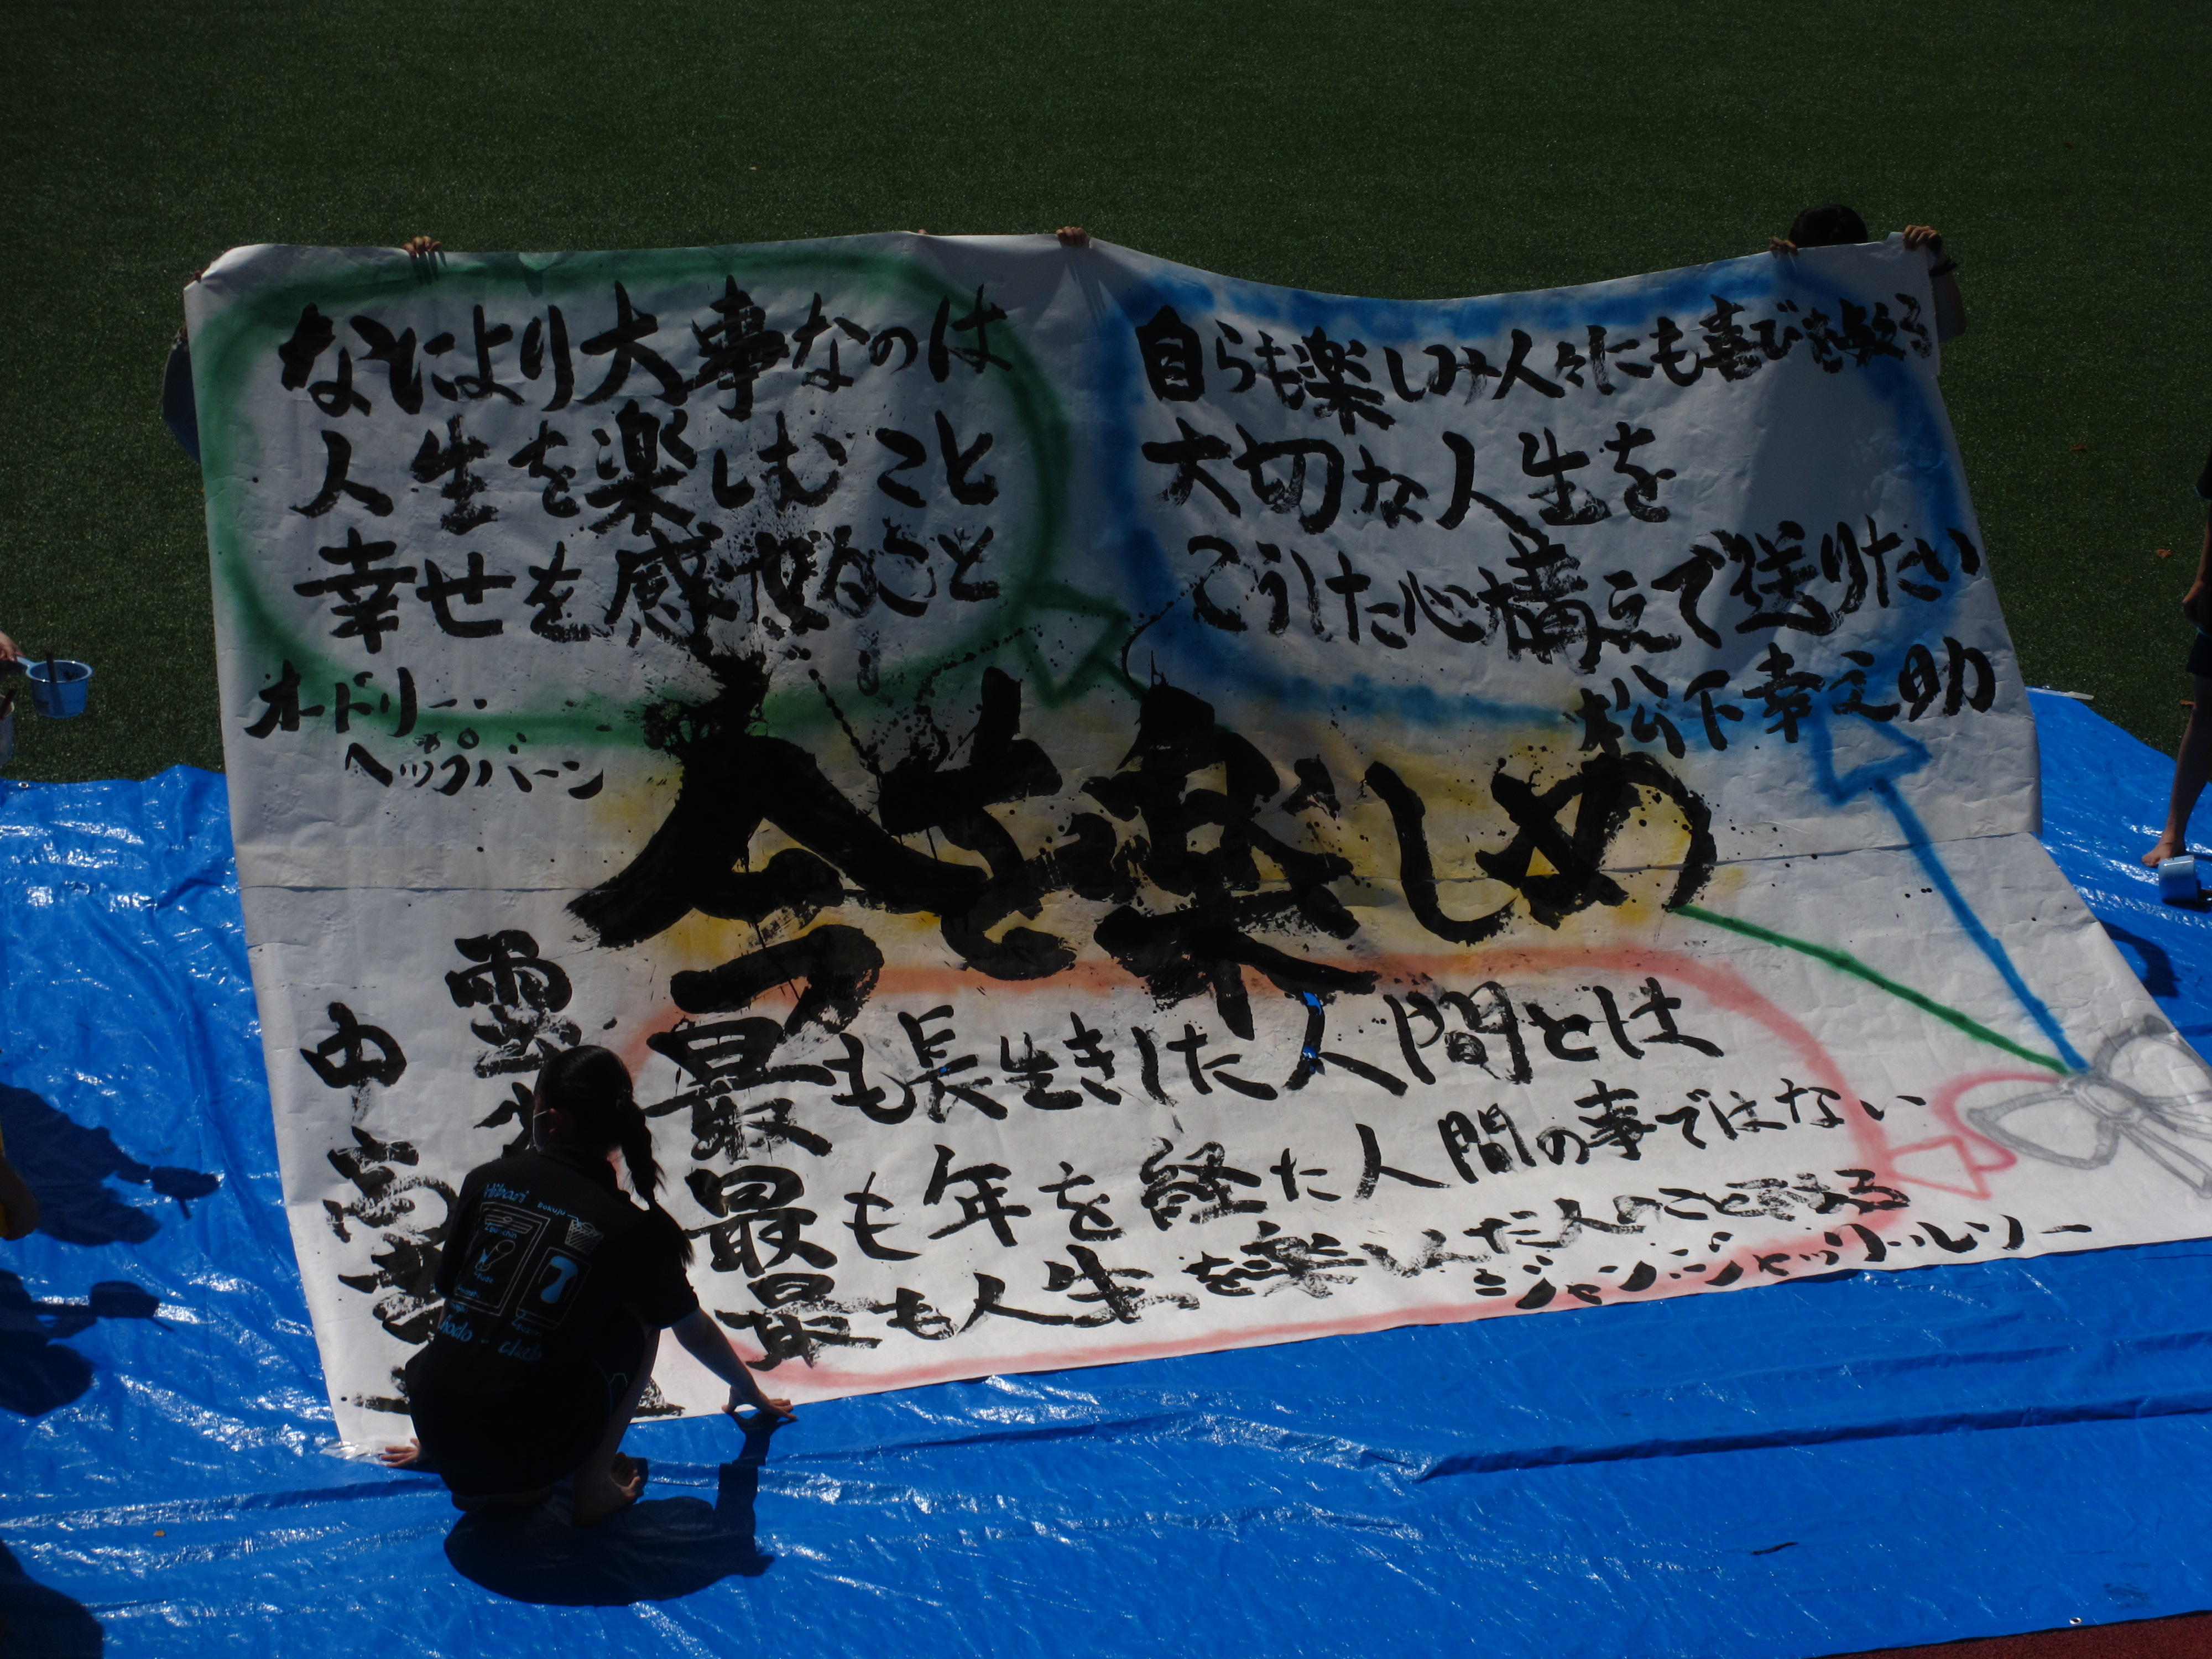 なにより大事なのは
人生を楽しむこと
幸せを感じること
オードリー・
ヘップバーン
自らも楽しみ人々にも喜びを与える
大切な人生を
こうした心構えで送りたい
松下幸之助
今を楽しめ
最も長生きした人間とは
最も年を経た人間の事ではない
最も人生を楽しんだ人のことである
ジャン・ジャック・ルソー
雲雀
中高書
Hibari